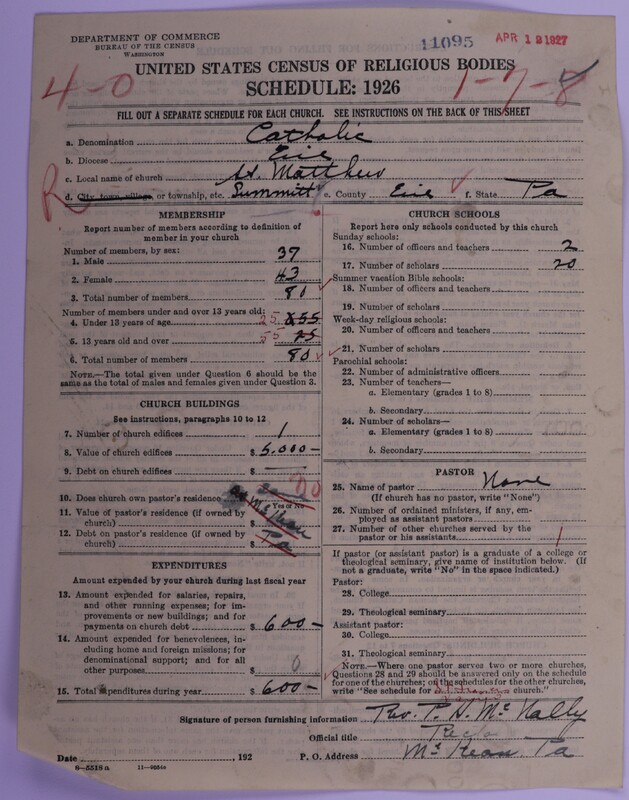 DEPARTMENT OF COMMERCE
BUREAU OF THE CENSUS
WASHINGTON
11095
APR 12 1927
UNITED STATES CENSUS OF RELIGIOUS BODIES
4-0
SCHEDULE: 1926
1-7-8
FILL OUT A SEPARATE SCHEDULE FOR EACH CHURCH. SEE INSTRUCTIONS ON THE BACK OF THIS SHEET
a. Denomination Catholic
b. Diocese Erie
c. Local name of church St. Matthew
R
d. City, town, village, or township, etc. Summitt e. County Erie f. State Pa
MEMBERSHIP
Report number of members according to definition of
member in your church
Number of members, by sex:
1. Male 37
2. Female 43
3. Total number of members 80
Number of members under and over 13 years old:
4. Under 13 years of age 25
5. 13 years old and over 55 25
6. Total number of members 80
NOTE.—The total given under Question 6 should be the
same as the total of males and females given under Question 3.
CHURCH BUILDINGS
See instructions, paragraphs 10 to 12
7. Number of church edifices 1
8. Value of church edifices $ 5.000—
9. Debt on church edifices $ —
10. Does church own pastor's residence no
Yes or No
11. Value of pastor's residence (if owned by
church) $ at McKean
12. Debt on pastor's residence (if owned by
church) $ Pa
EXPENDITURES
Amount expended by your church during last fiscal year
13. Amount expended for salaries, repairs,
and other running expenses; for im-
provements or new buildings; and for
payments on church debt $ 600—
14. Amount expended for benevolences, in-
cluding home and foreign missions; for
denominational support; and for all
other purposes $ 0
15. Total expenditures during year $ 600—
CHURCH SCHOOLS
Report here only schools conducted by this church
Sunday schools:
16. Number of officers and teachers 2
17. Number of scholars 20
Summer vacation Bible schools:
18. Number of officers and teachers
19. Number of scholars
Week-day religious schools:
20. Number of officers and teachers
21. Number of scholars
Parochial schools:
22. Number of administrative officers
23. Number of teachers—
a. Elementary (grades 1 to 8)
b. Secondary
24. Number of scholars—
a. Elementary (grades 1 to 8)
b. Secondary
PASTOR
25. Name of pastor None
(If church has no pastor, write "None")
26. Number of ordained ministers, if any, em-
ployed as assistant pastors
27. Number of other churches served by the
pastor or his assistants 1
If pastor (or assistant pastor) is a graduate of a college or
theological seminary, give name of institution below. (If
not a graduate, write "No" in the space indicated.)
Pastor:
28. College
29. Theological seminary
Assistant pastor:
30. College
31. Theological seminary
NOTE.—Where one pastor serves two or more churches,
Questions 28 and 29 should be answered only on the schedule
for one of the churches; on the schedules for the other churches,
write "See schedule for St. Francis church."
Signature of person furnishing information Rev. P. H. McNally
Official title
Date , 192 P. O. Address McKean Pa
8—5518 a 11—9554a